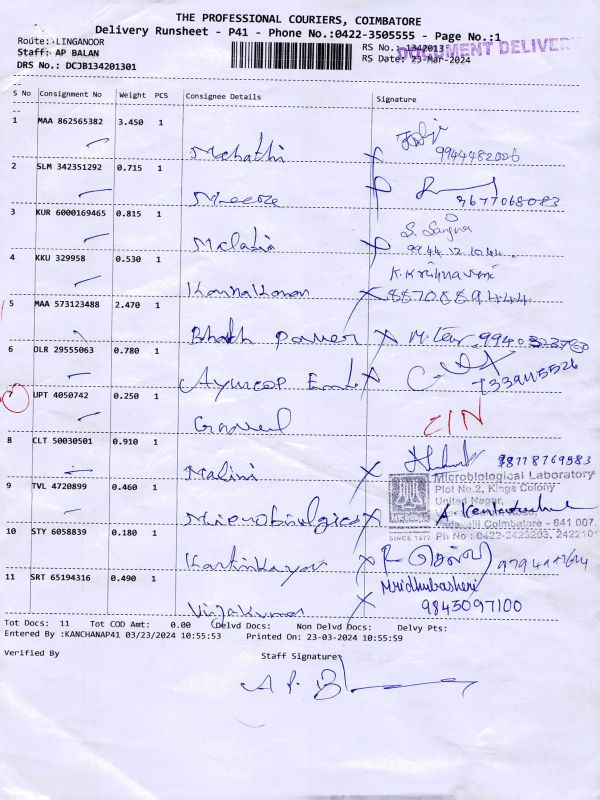 THE PROFESSIONAL COURIERS, COIMBATORE
Delivery Runsheet - P41 - Phone No.:0422-3505555 - Page No.:1
Route: LINGANOOR
RS No.: 1342013
DOCUMENT DELIVER
Staff: AP BALAN
RS Date: 23-Mar-2024
DRS No.: DCJB134201301
S No Consignment No Weight PCS Consignee Details Signature
1 MAA 862565382 3.450 1
Mahathi 9944482006
2 SLM 342351292 0.715 1
3677068083
3 KUR 6000169465 0.815 1
S. Sanjna
Malathi 9944 12 1044
4 KKU 329958 0.530 1
K.Krishnaveni
Kannakannan
5 MAA 573123488 2.470 1
Bharath Power
6 DLR 29555063 0.780 1
7339115526
7 UPT 4050742 0.250 1
CIN
8 CLT 50030501 0.910 1
Malini 98778769583
Microbiological Laboratory
9 TVL 4720899 0.460 1
Plot No.2, Kings Colony
United Nagar,
Microbiological
Coimbatore - 641 007.
10 STY 6058839 0.180 1
SINCE 1977 Ph No : 0422-2423203, 2422101
Karthikayan
11 SRT 65194316 0.490 1
Mridhubashini
Vijayakumar 9843097100
Tot Docs: 11 Tot COD Amt: 0.00 Delvd Docs: Non Delvd Docs: Delvy Pts:
Entered By :KANCHANAP41 03/23/2024 10:55:53 Printed On: 23-03-2024 10:55:59
Verified By Staff Signature
A P. B